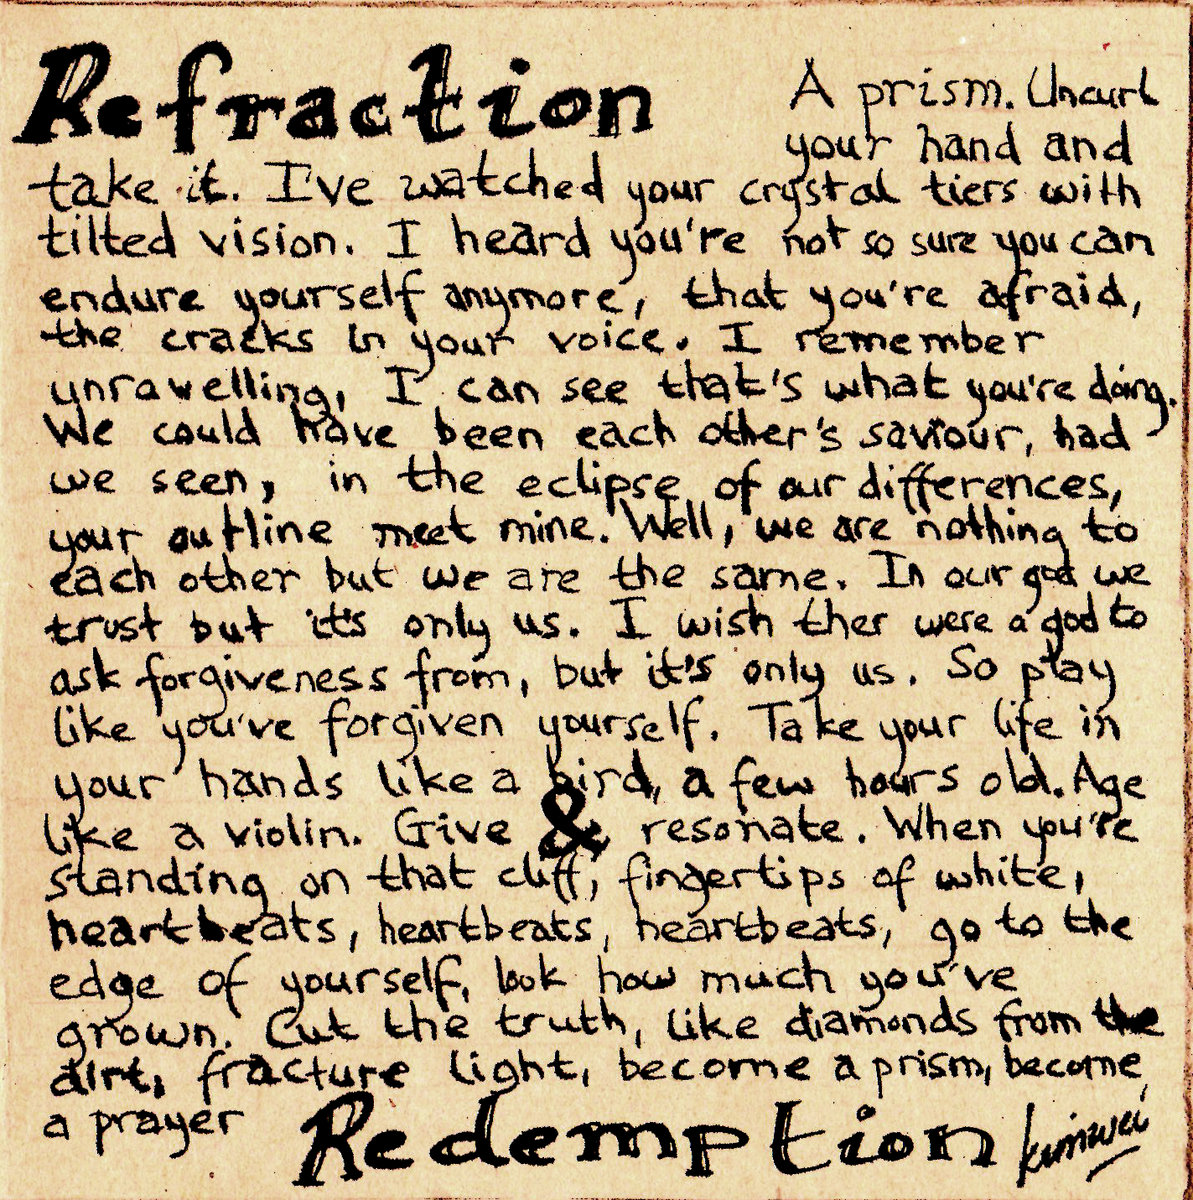 Refraction
A prism. Uncurl
your hand and
take it. I've watched your crystal tiers with
tilted vision. I heard you're not so sure you can
endure yourself anymore, that you're afraid,
the cracks in your voice. I remember
unravelling, I can see that's what you're doing.
We could have been each other's saviour, had
we seen, in the eclipse of our differences,
your outline meet mine. Well, we are nothing to
each other but we are the same. In our god we
trust but it's only us. I wish ther were a god to
ask forgiveness from, but it's only us. So play
like you've forgiven yourself. Take your life in
your hands like a bird, a few hours old. Age
like a violin. Give & resonate. When you're
standing on that cliff, fingertips of white,
heartbeats, heartbeats, heartbeats, go to the
edge of yourself, look how much you've
grown. Cut the truth, like diamonds from the
dirt, fracture light, become a prism, become
a prayer
Redemption
kimwei